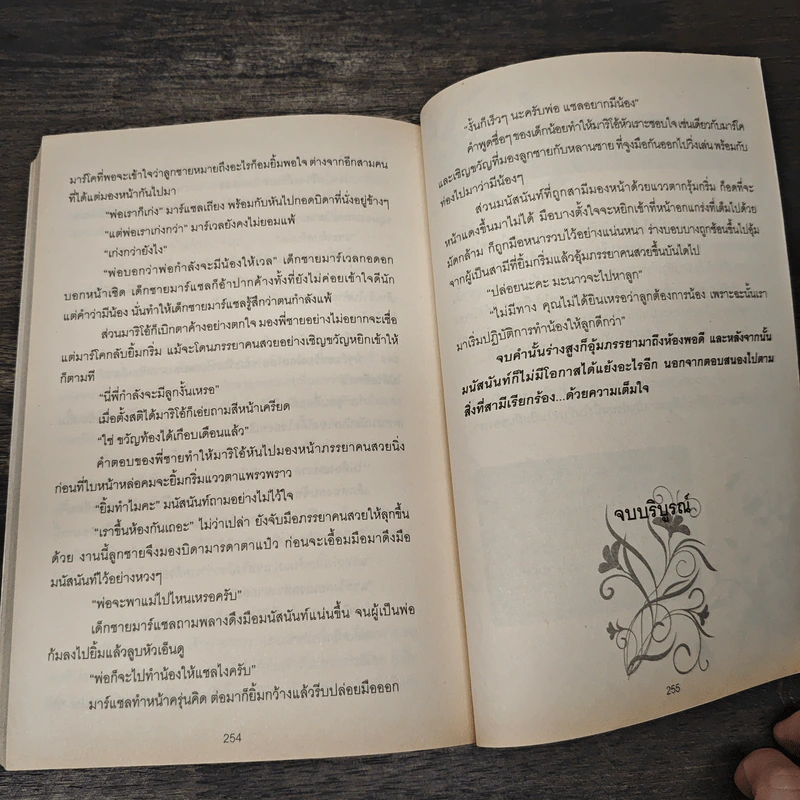 มาร์โคที่พอจะเข้าใจว่าลูกชายหมายถึงอะไรก็อมยิ้มพอใจ ต่างจากอีกสามคน
ที่ได้แต่มองหน้ากันไปมา
“พ่อเราก็เก่ง” มาร์แซลเถียง พร้อมกับหันไปกอดบิดาที่นั่งอยู่ข้างๆ
“แต่พ่อเราเก่งกว่า” มาร์เวลยังคงไม่ยอมแพ้
“เก่งกว่ายังไง”
“พ่อบอกว่าพ่อกำลังจะมีน้องให้เวล” เด็กชายมาร์เวลกอดอก
บอกหน้าเชิด เด็กชายมาร์แซลก็อ้าปากค้างทั้งที่ยังไม่ค่อยเข้าใจดีนัก
แต่คำว่ามีน้อง นั่นทำให้เด็กชายมาร์แซลรู้สึกว่าตนกำลังแพ้
ส่วนมาริโอ้ก็เบิกตาค้างอย่างตกใจ มองพี่ชายอย่างไม่อยากจะเชื่อ
แต่มาร์โคกลับยิ้มกริ่ม แม้จะโดนภรรยาคนสวยอย่างเชิญขวัญหยิกเข้าให้
ก็ตามที
“นี่พี่กำลังจะมีลูกงั้นเหรอ”
เมื่อตั้งสติได้มาริโอ้ก็เอ่ยถามสีหน้าเครียด
“ใช่ ขวัญท้องได้เกือบเดือนแล้ว”
คำตอบของพี่ชายทำให้มาริโอ้หันไปมองหน้าภรรยาคนสวยนิ่ง
ก่อนที่ใบหน้าหล่อคมจะยิ้มกริ่มแววตาแพรวพราว
“ยิ้มทำไมคะ” มนัสนันท์ถามอย่างไม่ไว้ใจ
“เราขึ้นห้องกันเถอะ” ไม่ว่าเปล่า ยังจับมือภรรยาคนสวยให้ลุกขึ้น
ด้วย งานนี้ลูกชายจึงมองบิดามารดาตาแป๋ว ก่อนจะเอื้อมมือมาดึงมือ
มนัสนันท์ไว้อย่างหวงๆ
“พ่อจะพาแม่ไปไหนเหรอครับ”
เด็กชายมาร์แซลถามพลางดึงมือมนัสนันท์แน่นขึ้น จนผู้เป็นพ่อ
ก้มลงไปยิ้มแล้วลูบหัวเอ็นดู
“พ่อก็จะไปทำน้องให้แซลไงครับ”
มาร์แซลทำหน้าครุ่นคิด ต่อมาก็ยิ้มกว้างแล้วรีบปล่อยมือออก
254
“งั้นก็เร็วๆ นะครับพ่อ แซลอยากมีน้อง”
คำพูดซื่อๆ ของเด็กน้อยทำให้มาริโอ้หัวเราะชอบใจ เช่นเดียวกับมาร์โค
และเชิญขวัญที่มองลูกชายกับหลานชาย ที่จูงมือกันออกไปวิ่งเล่น พร้อมกับ
ท่องไปมาว่ามีน้องๆ
ส่วนมนัสนันท์ที่ถูกสามีมองหน้าด้วยแววตากรุ้มกริ่ม ก็อดที่จะ
หน้าแดงขึ้นมาไม่ได้ มือบางตั้งใจจะหยิกเข้าที่หน้าอกแกร่งที่เต็มไปด้วย
มัดกล้าม ก็ถูกมือหนารวบไว้อย่างแน่นหนา ร่างบอบบางถูกช้อนขึ้นไปอุ้ม
จากผู้เป็นสามีที่ยิ้มกริ่มแล้วอุ้มภรรยาคนสวยขึ้นบันไดไป
“ปล่อยนะคะ มะนาวจะไปหาลูก”
“ไม่มีทาง คุณไม่ได้ยินเหรอว่าลูกต้องการน้อง เพราะฉะนั้นเรา
มาเริ่มปฏิบัติการทำน้องให้ลูกดีกว่า”
จบคำนั้นร่างสูงก็อุ้มภรรยามาถึงห้องพอดี และหลังจากนั้น
มนัสนันท์ก็ไม่มีโอกาสได้แย้งอะไรอีก นอกจากตอบสนองไปตาม
สิ่งที่สามีเรียกร้อง...ด้วยความเต็มใจ
จบบริบูรณ์
255